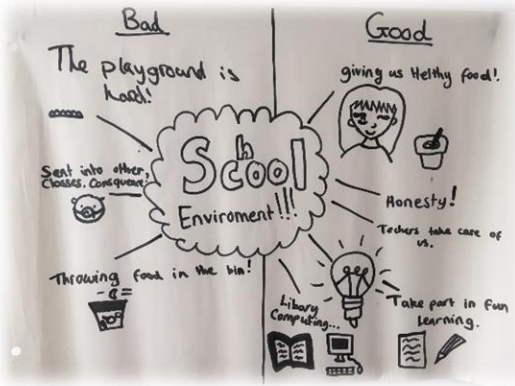 Bad
The playground is
hard!
Sent into other,
Classes. Consquence.
Throwing food in the bin!
School
Enviroment!!!
Good
giving us Helthy food!.
Honesty!
Techers take care of
us.
Take part in fun
learning.
Libary
Computing...